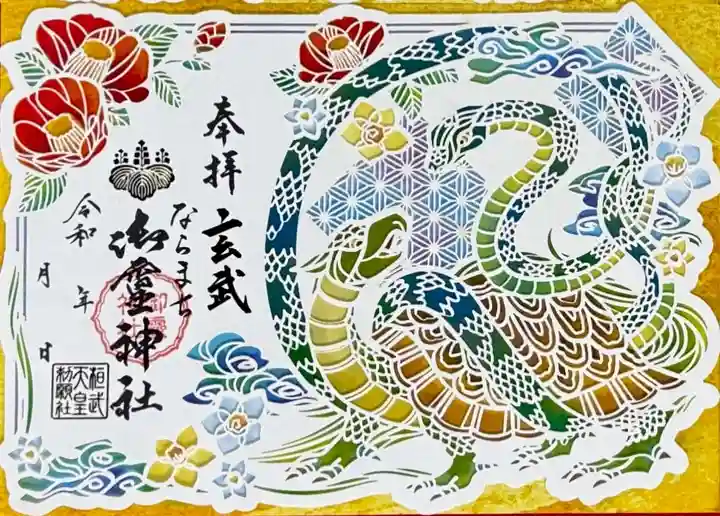 奉拝
玄武
ならまち
御霊神社
令和
年
月
日
桓武
天皇
勅願社